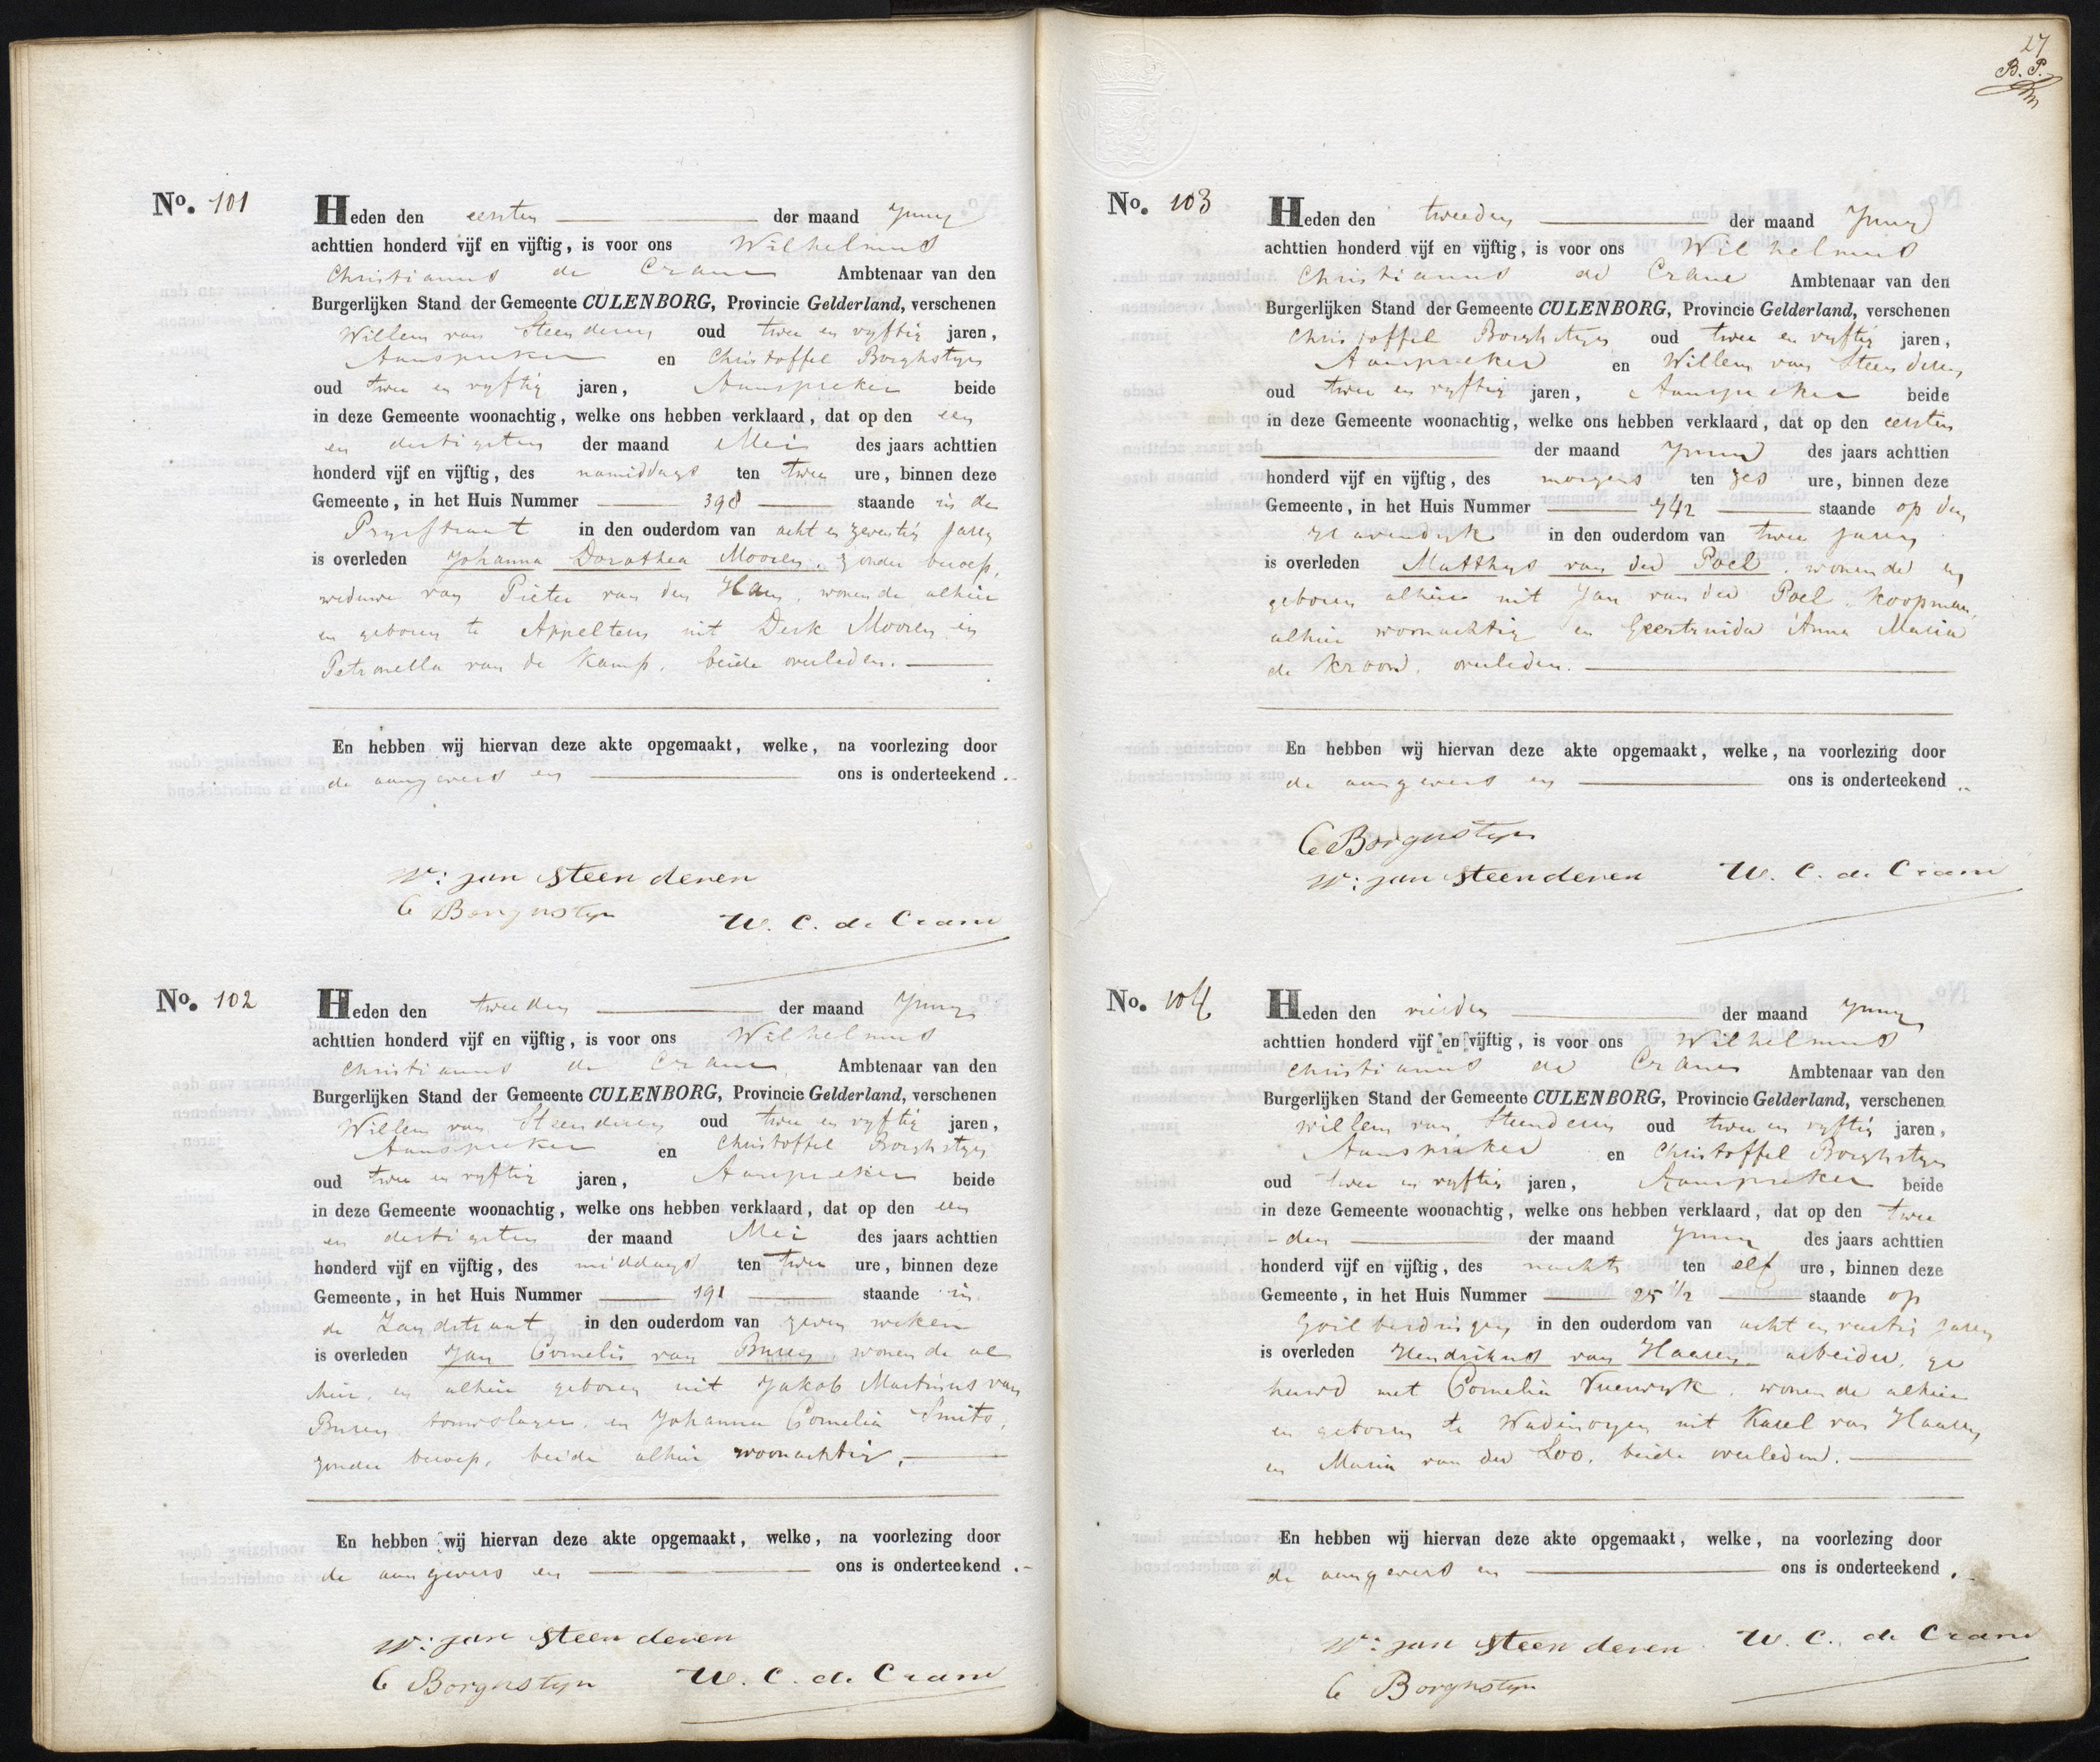 No. 101
Heden den eersten der maand Juny
achttien honderd vijf en vijftig, is voor ons Wilhelmus
Christianus de Crane Ambtenaar van den
Burgerlijken Stand der Gemeente CULENBORG, Provincie Gelderland, verschenen
Willem van Steenderen oud twee en vyftig jaren,
Aanspreker en Christoffel Borghstyn
oud twee en vyftig jaren, Aanspreker beide
in deze Gemeente woonachtig, welke ons hebben verklaard, dat op den een
en dertigsten der maand Mei des jaars achttien
honderd vijf en vijftig, des namiddags ten twee ure, binnen deze
Gemeente, in het Huis Nummer 398 staande in de
Prysstraat in den ouderdom van acht en zeventig jaren
is overleden Johanna Dorothea Mooren, zonder beroep,
weduwe van Pieter van den Ham, wonende alhier
en geboren te Appeltern uit Derk Mooren en
Petronella van de Kamp, beide overleden.
En hebben wij hiervan deze akte opgemaakt, welke, na voorlezing door
de aangevers en ons is onderteekend.
W: van Steenderen
C Borgnstyn
W. C. de Crane
No. 102
Heden den tweeden der maand Juny
achttien honderd vijf en vijftig, is voor ons Wilhelmus
Christianus de Crane Ambtenaar van den
Burgerlijken Stand der Gemeente CULENBORG, Provincie Gelderland, verschenen
Willem van Steenderen oud twee en vyftig jaren,
Aanspreker en Christoffel Borghstyn
oud twee en vyftig jaren, Aanspreker beide
in deze Gemeente woonachtig, welke ons hebben verklaard, dat op den een
en dertigsten der maand Mei des jaars achttien
honderd vijf en vijftig, des middags ten twee ure, binnen deze
Gemeente, in het Huis Nummer 191 staande in
de Zandstraat in den ouderdom van zeven weken
is overleden Jan Cornelis van Buren, wonende al
hier, en alhier geboren uit Jakob Martinus van
Buren touwslager, en Johanna Cornelia Smits,
zonder beroep, beide alhier woonachtig.
En hebben wij hiervan deze akte opgemaakt, welke, na voorlezing door
de aangevers en ons is onderteekend.
W: van Steenderen
C Borgnstyn W. C. de Crane
27
B. P.
No. 103
Heden den tweeden der maand Juny
achttien honderd vijf en vijftig, is voor ons Wilhelmus
Christianus de Crane Ambtenaar van den
Burgerlijken Stand der Gemeente CULENBORG, Provincie Gelderland, verschenen
Christoffel Borghstyn oud twee en vyftig jaren,
Aanspreker en Willem van Steenderen
oud twee en vyftig jaren, Aanspreker beide
in deze Gemeente woonachtig, welke ons hebben verklaard, dat op den eersten
der maand Juny des jaars achttien
honderd vijf en vijftig, des morgens ten zes ure, binnen deze
Gemeente, in het Huis Nummer 742 staande op den
Havendyk in den ouderdom van twee jaren
is overleden Matthys van der Poel, wonende en
geboren alhier uit Jan van der Poel, koopman,
alhier woonachtig en Geertruida Anna Maria
de Kroon, overleden.
En hebben wij hiervan deze akte opgemaakt, welke, na voorlezing door
de aangevers en ons is onderteekend.
C Borgnstyn
W: van Steenderen W. C. de Crane
No. 104
Heden den vierden der maand Juny
achttien honderd vijf en vijftig, is voor ons Wilhelmus
Christianus de Crane Ambtenaar van den
Burgerlijken Stand der Gemeente CULENBORG, Provincie Gelderland, verschenen
Willem van Steenderen oud twee en vyftig jaren,
Aanspreker en Christoffel Borghstyn
oud twee en vyftig jaren, Aanspreker beide
in deze Gemeente woonachtig, welke ons hebben verklaard, dat op den twee
-den der maand Juny des jaars achttien
honderd vijf en vijftig, des nachts ten elf ure, binnen deze
Gemeente, in het Huis Nummer 25 1/2 staande op
Goilberdingen in den ouderdom van acht en zestig jaren
is overleden Hendrikus van Haaren arbeider, ge
huwd met Cornelia Vuurwyk, wonende alhier
en geboren te Wadenoyen uit Karel van Haaren
en Maria van der Loo, beide overleden.
En hebben wij hiervan deze akte opgemaakt, welke, na voorlezing door
de aangevers en ons is onderteekend.
W: van Steenderen W. C. de Crane
C Borgnstyn